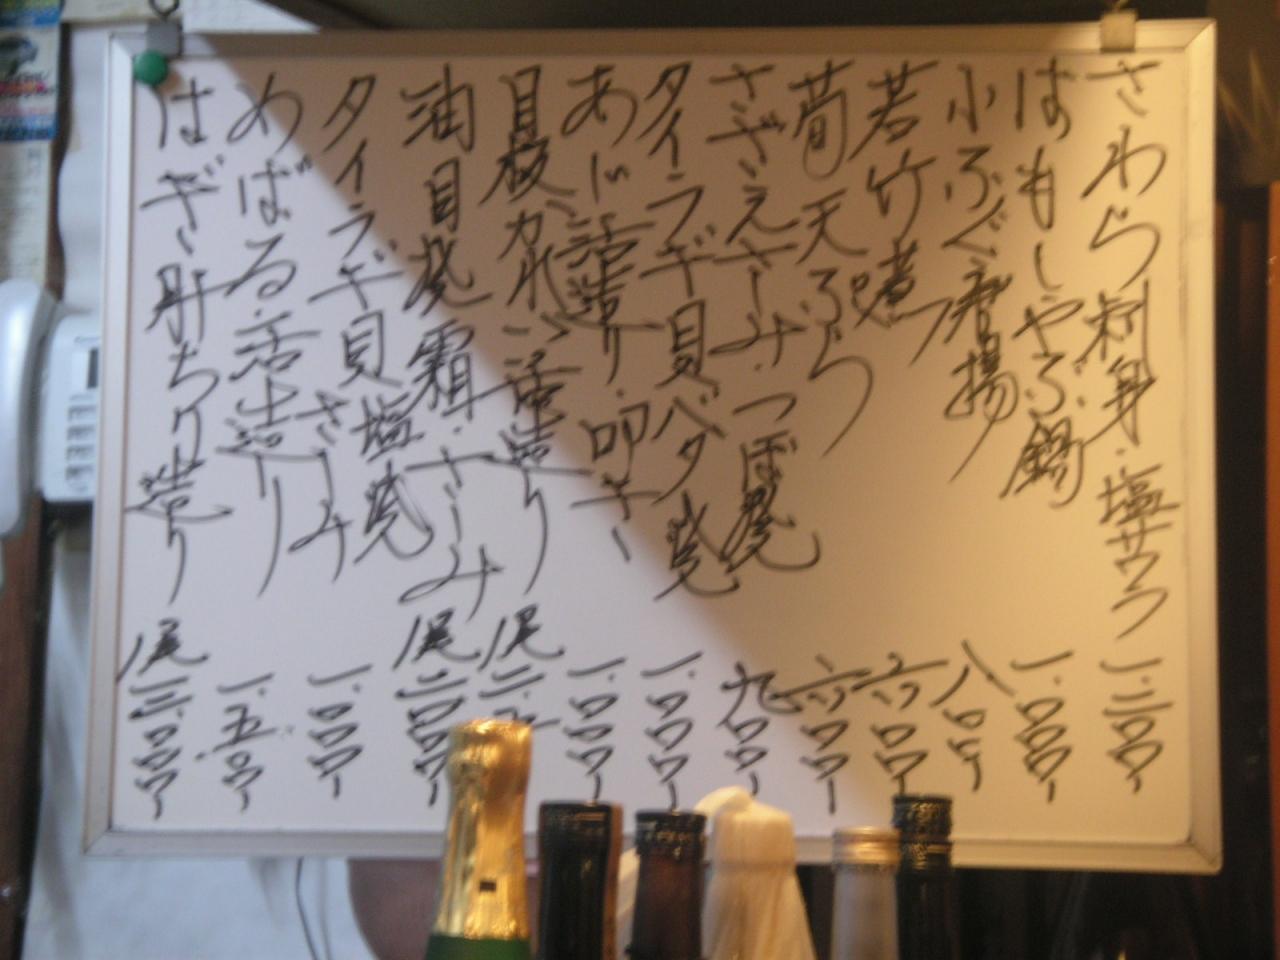 さわら刺身・塩サワラ 一、三〇〇
はもしゃぶ鍋 一、〇〇〇
小ふぐ唐揚 八〇〇
若竹煮 六〇〇
筍天ぷら 六〇〇
さざえさしみ・つぼ焼 九〇〇
タイラギ貝バタ焼 一、〇〇〇
あじ活造り・叩き 一、〇〇〇
目板かれい活造り 1尾 二、
油目焼霜・さしみ 1尾 二〇〇〇
タイラギ貝塩焼 さしみ 一、〇〇〇
めばる活造り 一、五〇〇
はぎ肝ちり造り 1尾 三、〇〇〇